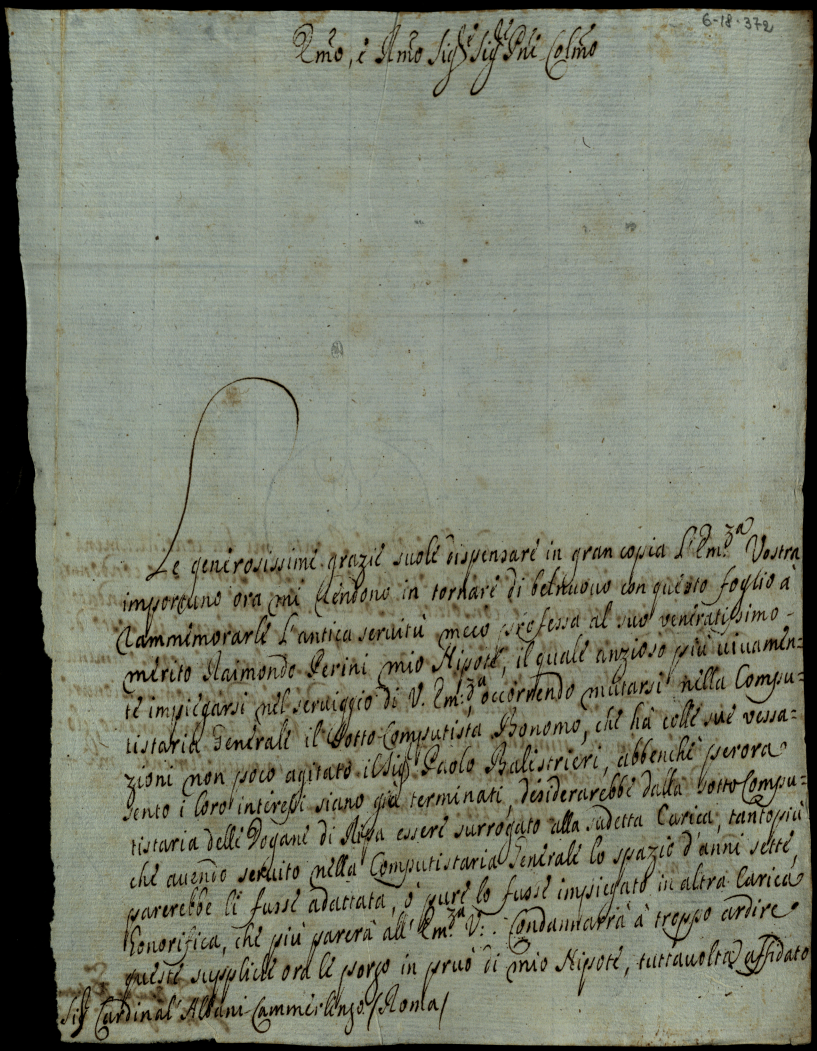 6-18-372
Emo, e Rmo Sigre Sigre Pne Colmo
Le generosissime grazie suole dispensare in gran copia l'Em:za Vostra
importuno ora mi rendono in tornare di belnuovo con questo foglio à
rammemorarle l'antica servitù meco professa al suo veneratissimo
merito Raimondo Perini mio Nipote, il quale anzioso più vivamen=
te impiegarsi nel serviggio di V. Em:za, occorrendo mutarsi nella Compu=
tistaria Generale il Sotto Computista Bonomo, che hà colle sue vessa=
zioni non poco agitato il Sigr Paolo Balistrieri, abbenche perora
sento i loro interessi siano già terminati, desiderarebbe dalla sotto Compu=
tistaria delle Dogane di Ripa essere surrogato alla sudetta Carica, tantopiù
che avendo servito nella Computistaria Generale lo spazio d'anni sette,
parerebbe li fusse adattata, ò pure lo fusse impiegato in altra Carica
honorifica, che più parerà all'Em:za V:. Condannarrà à troppo ardire
queste suppliche ora le porgo in pruo di mio Nipote, tuttavolta affidato
Sigr Cardinal' Albani Cammerlengo (Roma)